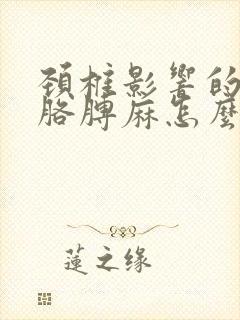 頚椎影響的
胳膊麻怎麼
蓮之缘